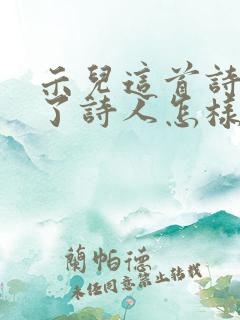 示兒這首詩
了詩人怎樣
蘭帕德
未經同意禁止轉載